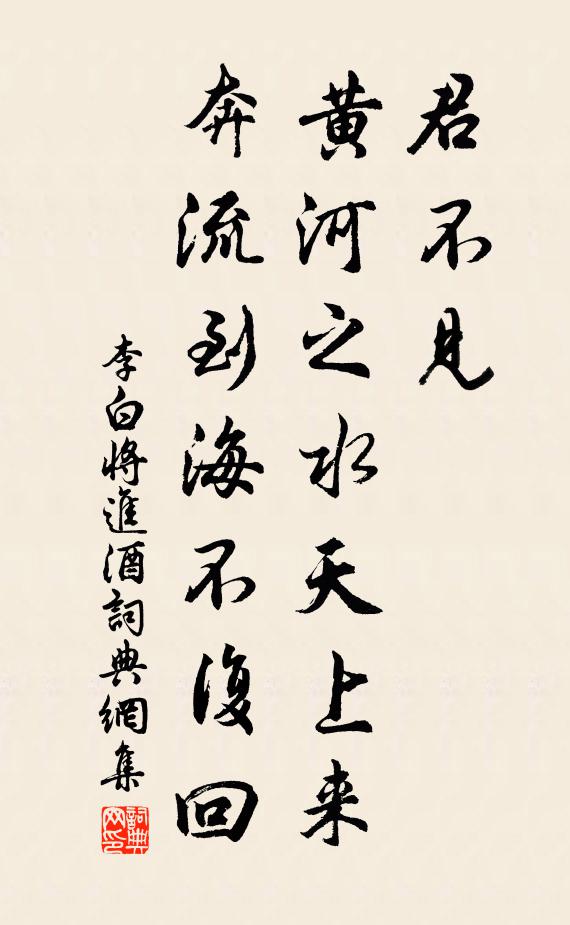 君不見
黄河之水天上来
奔流到海不復回
李白將進酒詞典網集
詞典网印